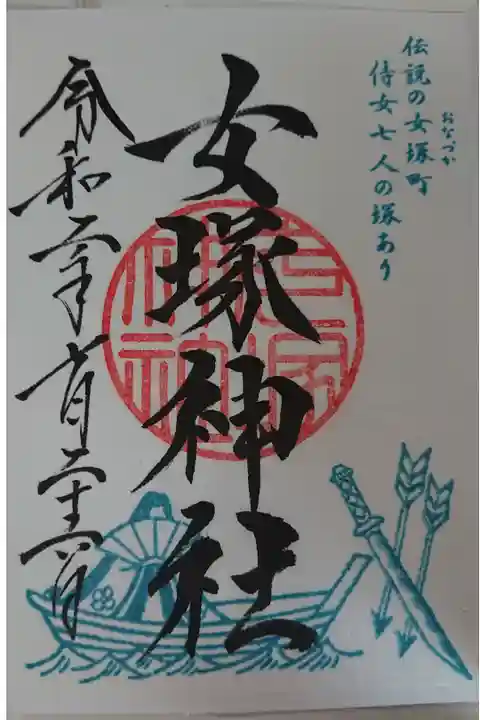 伝説の女塚町
おなづか
侍女七人の塚あり
女塚神社
令和二年
二十六日